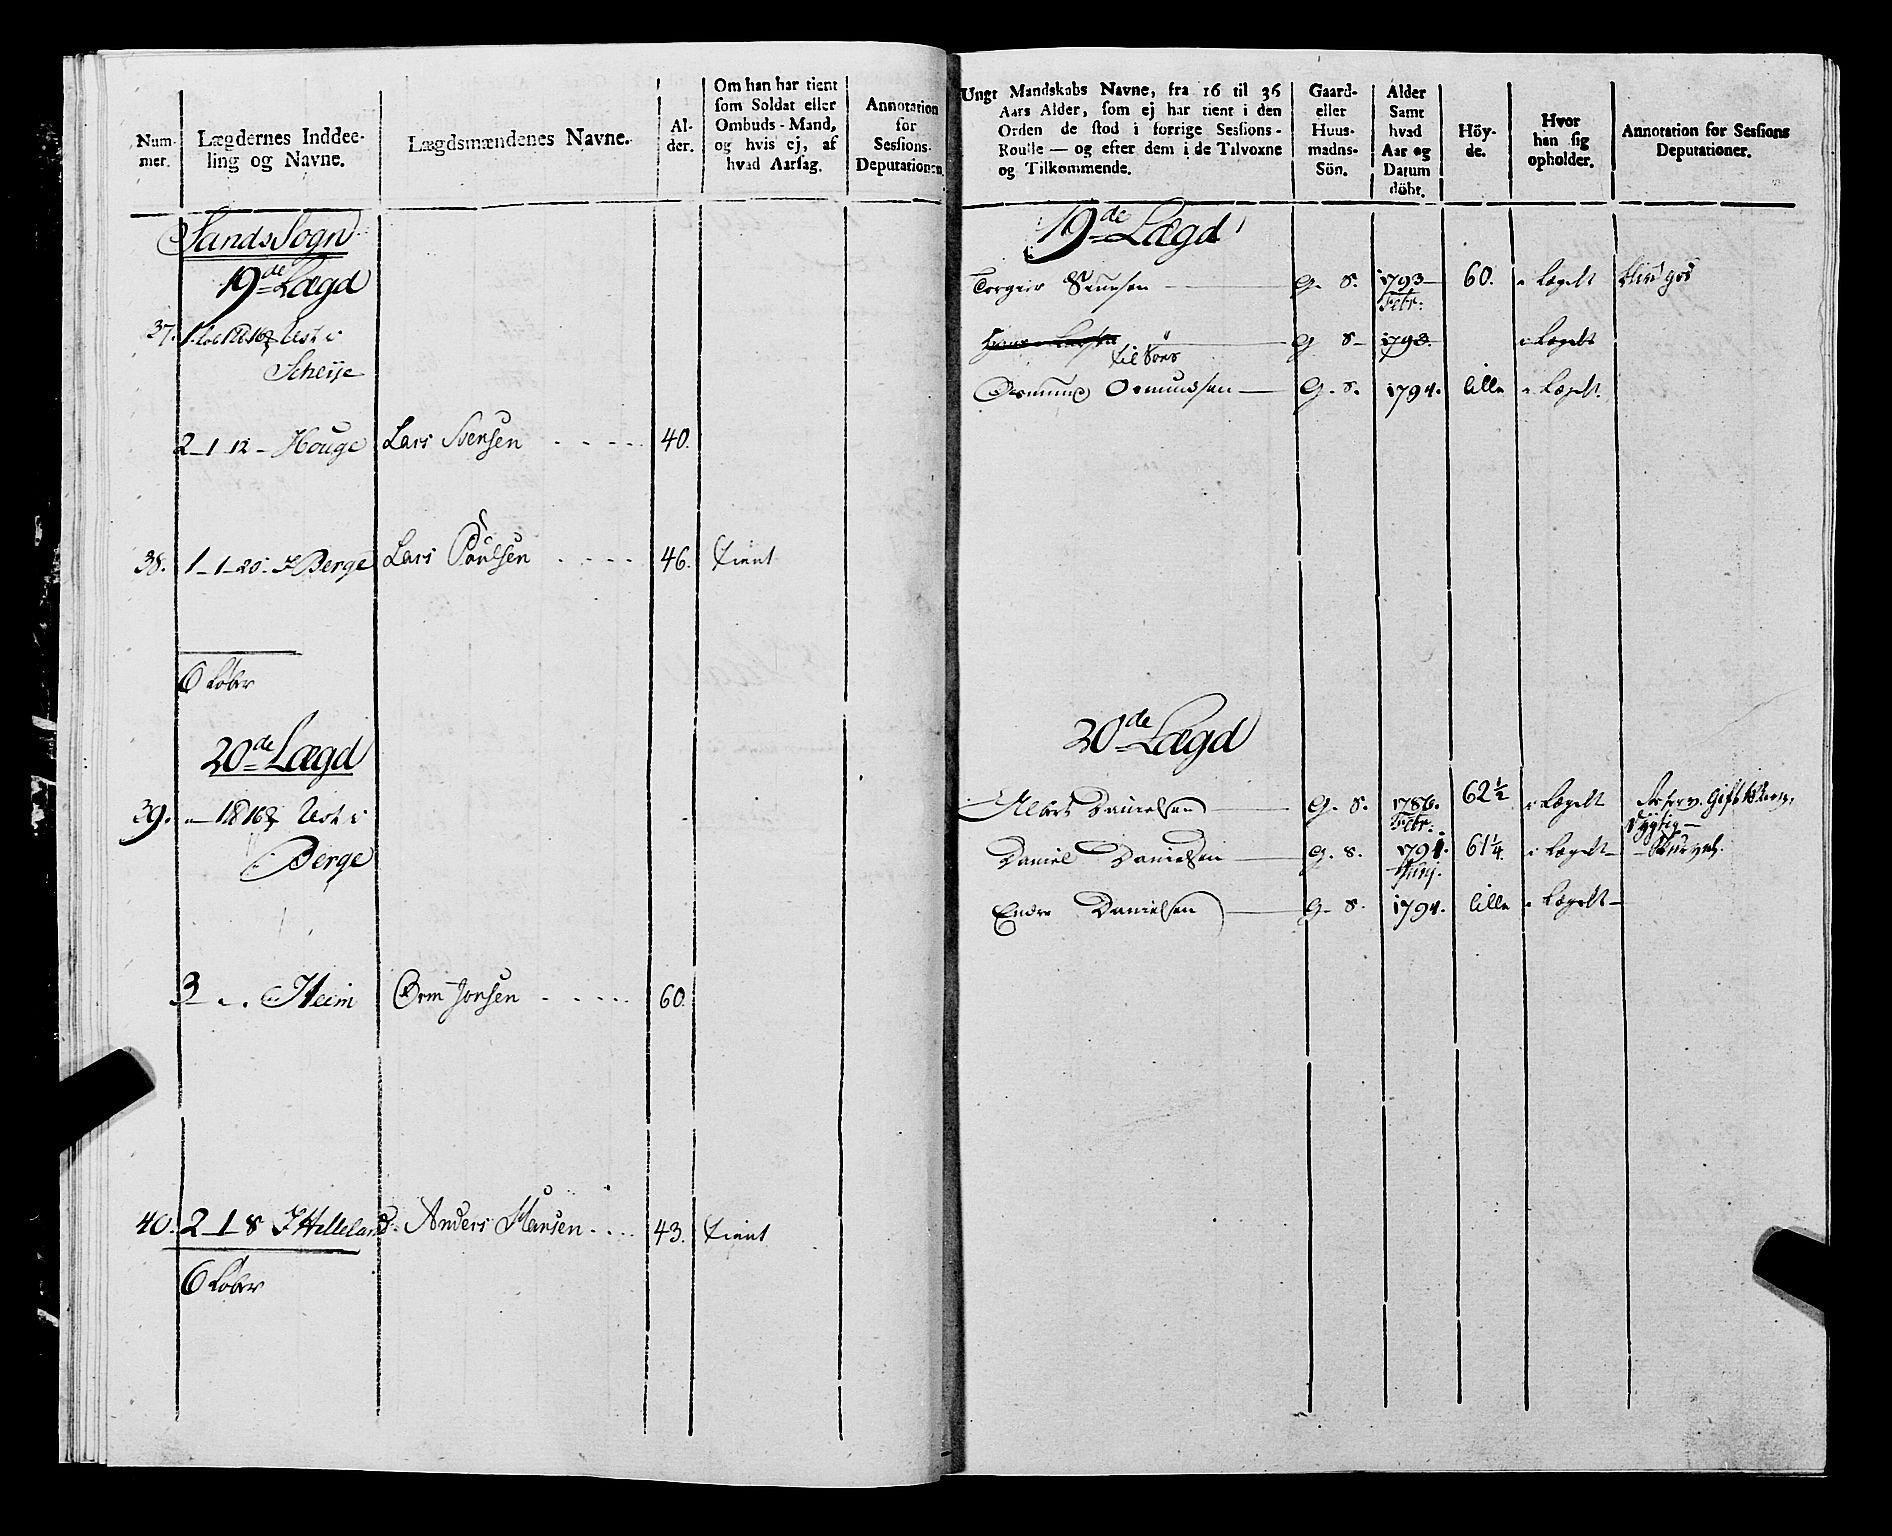 Num-
mer.
Lægdernes Inddee-
ling og Navne.
Lægdsmændenes Navne.
Al-
der.
Om han har tient
som Soldat eller
Ombuds-Mand,
og hvis ej, af
hvad Aarsag.
Annotation
for
Sessions-
Deputationen.
Sands Sogn
19de Lægd
37.
Scheije
2-1 12 - Houge Lars Svensen 40.
38. 1-1-20. I Berge Lars Poulsen 46. tient
6 Løber
20de Lægd
39.
Berge
3 Heim Orm Jonsen 60.
40. 2-1 8 I Helleland Anders Hansen 43. tient
6 Løber
Ungt Mandskabs Navne, fra 16 til 36
Aars Alder, som ej har tient i den
Orden de stod i forrige Sessions-
Roulle — og efter dem i de Tilvoxne
og Tilkommende.
Gaard-
eller
Huus-
madns-
Sön.
Alder
Samt
hvad
Aar og
Datum
döbt.
Höy-
de.
Hvor
han sig
opholder.
Annotation for Sessions
Deputationer.
19de Lægd
Torgeir G. S. 1793 60. i Lægdt
Febr.
G S 1793 i Lægdt
Osmund Osmundsen G. S. 1794. lille i Lægdt.
20de Lægd
Albert Danielsen G. S. 1786. 62 1/2 i Lægdt
Febr.
Daniel Danielsen G. S. 1791. 61 1/4. i Lægdt
Junj.
Endre Danielsen G. S. 1794. lille i Lægdt